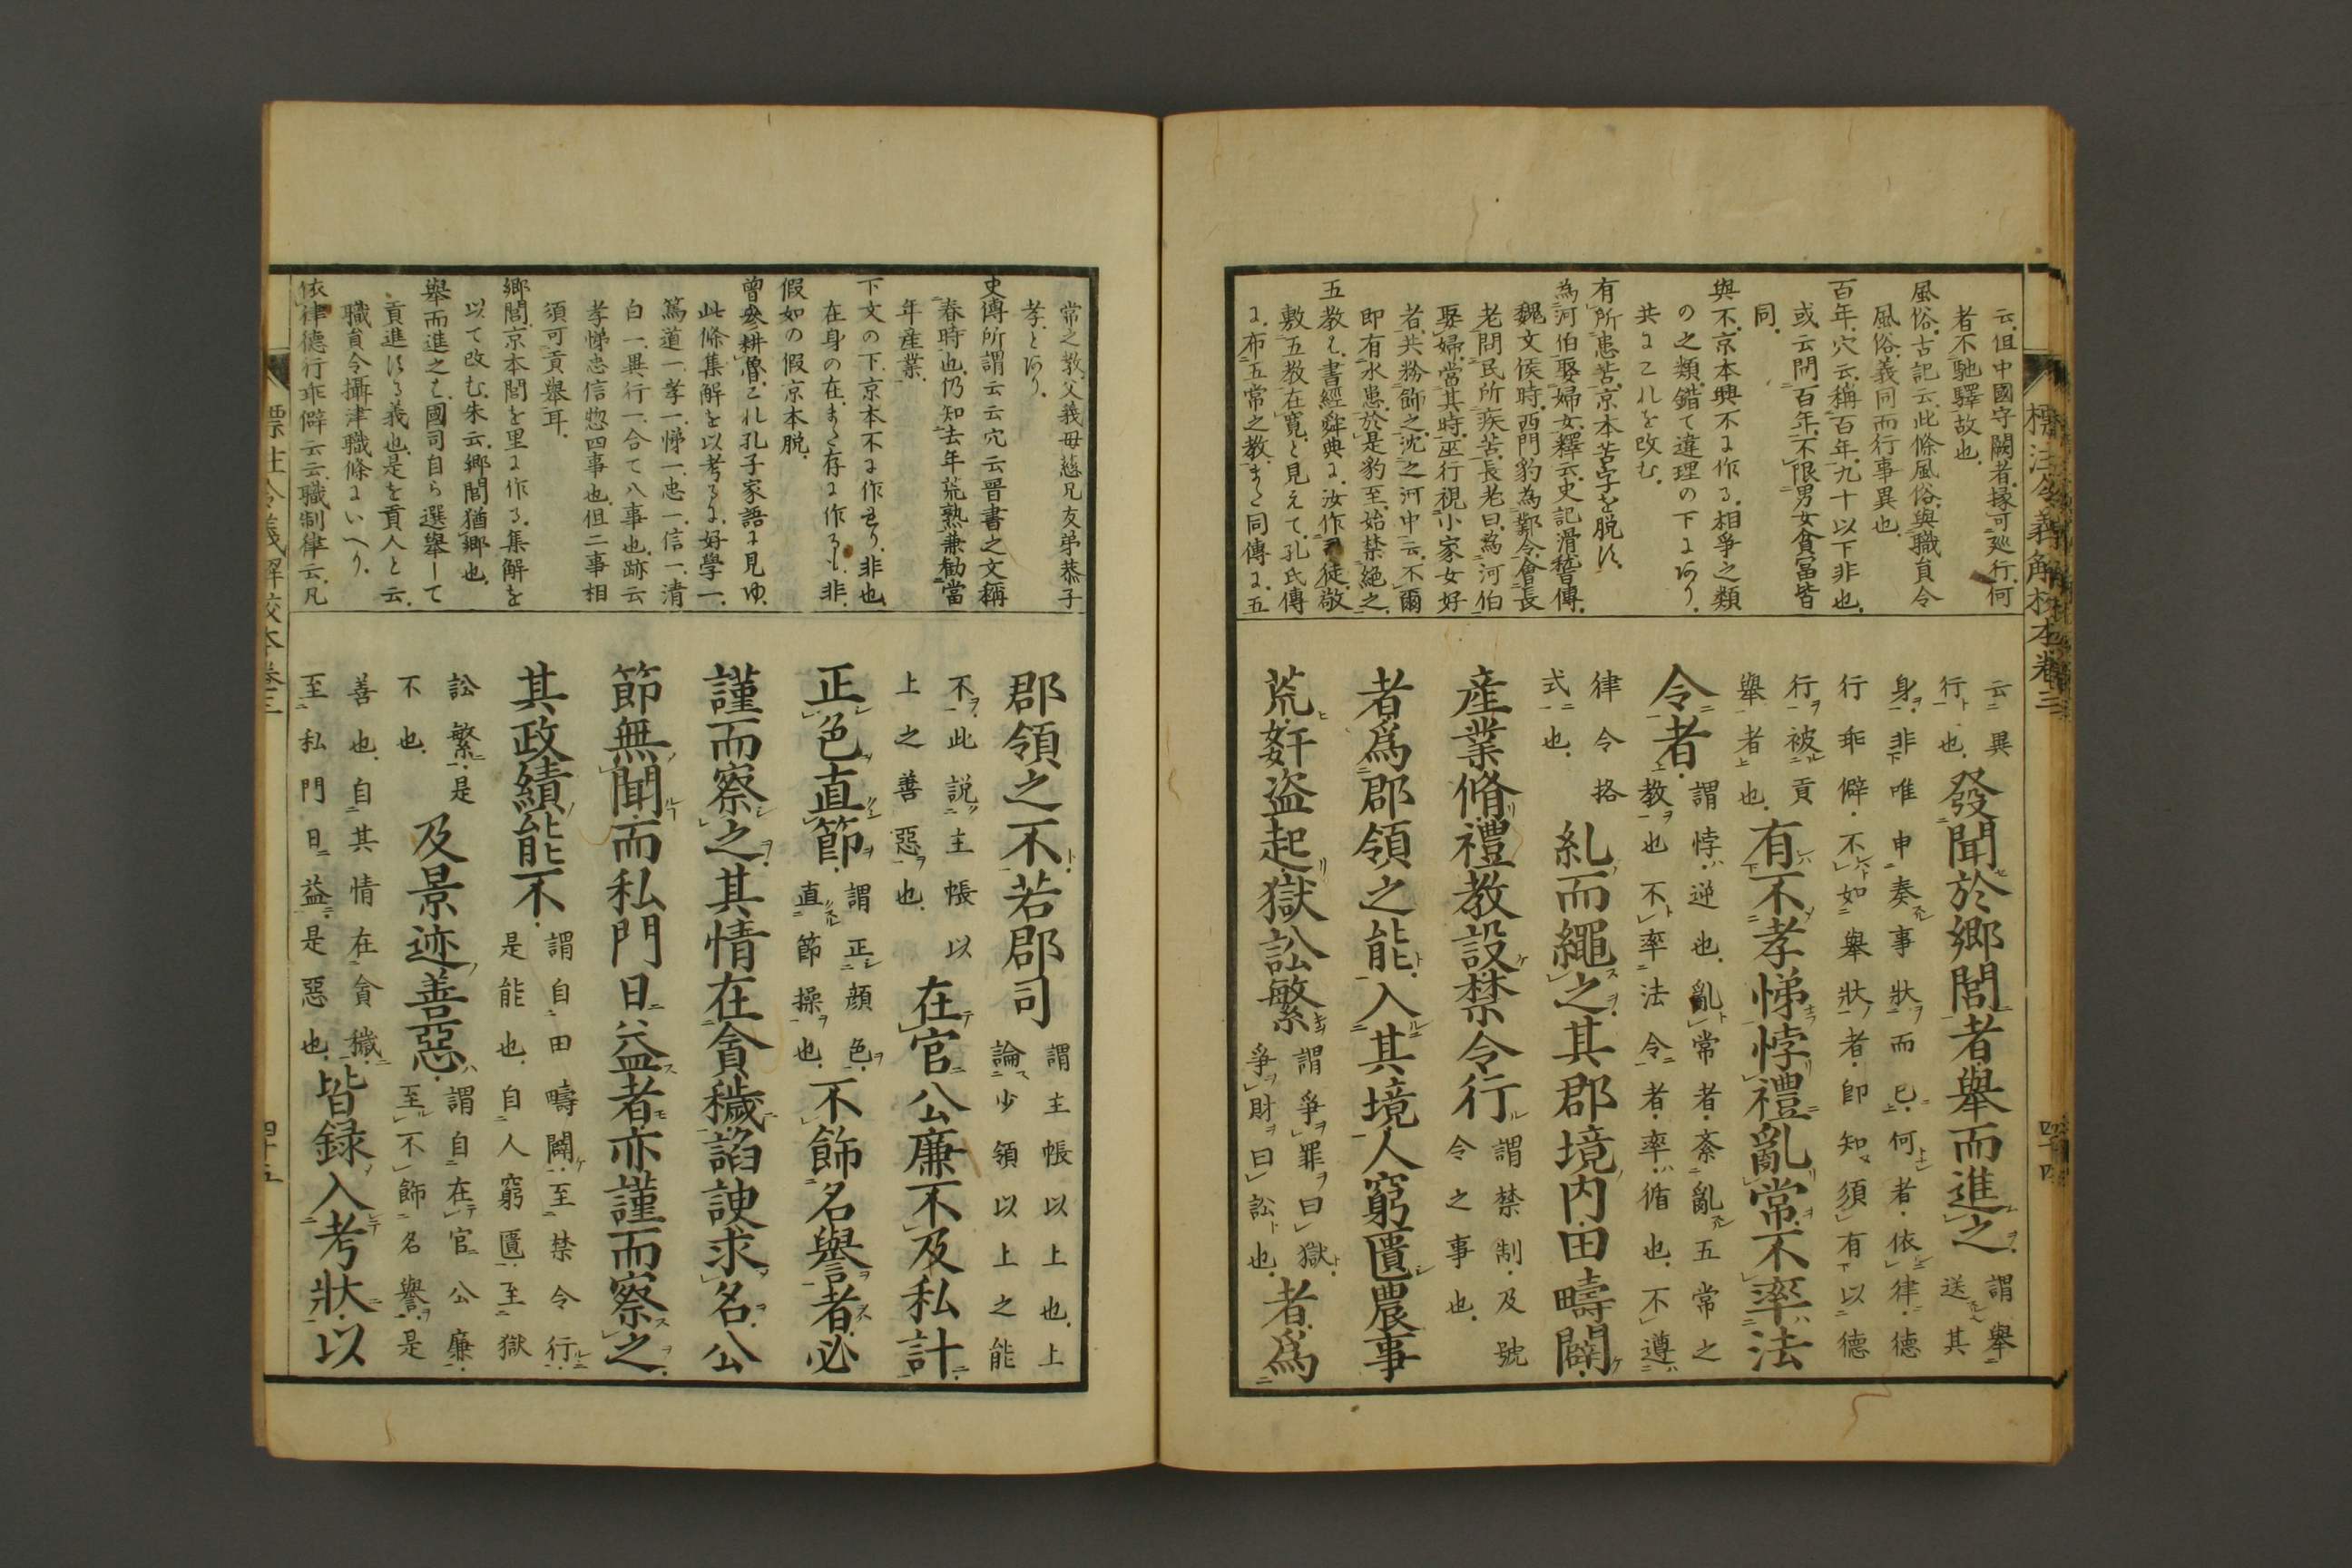 標注令義解校本卷三
云、但中國守闕者、掾可巡行、何
者不馳驛故也、
風俗、古記云、此條風俗、與職員令
風俗、義同而行事異也、
百年、穴云、稱百年、九十以下非也、
或云、問百年、不限男女貧富皆
同、
與不、京本與不に作る、相爭之類
の之類、錯て違理の下にあり、
共にこれを改む、
有所患苦、京本苦字を脱す、
為河伯娶婦女、釋云、史記滑稽傳、
魏文侯時、西門豹為鄴令、會長
老問民所疾苦、長老曰、為河伯
娶婦、當其時、巫行視小家女好
者、共粉飾之、沈之河中云、不爾
即有水患、於是豹至、始禁絶之、
五教は、書經舜典に、汝作司徒、敬
敷五教在寛、と見えて、孔氏傳
に、布五常之教、また同傳に、五
云異
行也、
發聞於鄉閭者、舉而進之、
謂舉
送其
身、非唯申奏事狀而已、何者、依律、德
行乖僻、不如舉狀者、即知、須有以德
行被貢
舉者也、
有不孝悌、悖禮、亂常、不率法
令者、
謂悖逆也、亂常者、紊亂五常之
教也、不率法令者、率循也、不遵
律令格
式也、
糺而繩之、其郡境內、田疇闢、
產業脩、禮教設、禁令行
謂禁制、及號
令之事也、
者、爲郡領之能、入其境、人窮匱、農事
荒、奸盜起、獄訟繁
謂爭罪曰獄、
爭財曰訟也、
者、爲
四十四
常之教、父義母慈兄友弟恭子
孝とあり、
史傳所謂云云、穴云、晋書之文、稱
春時也、仍知、去年荒熟兼勧當
年産業、
下文の下、京本不に作れり、非也、
在身の在、また存に作るも、非、
假如の假、京本脱、
曾參耕魯、これ孔子家語に見ゆ、
此條集解を以考るに、好學一、
篤道一、孝一、悌一、忠一、信一、清
白一、異行一、合て八事也、跡云
孝悌忠信惣四事也、但二事相
須可貢舉耳、
鄉閭、京本閭を里に作る、集解を
以て改む、朱云、鄉閭猶鄉也、
舉而進之は、國司自ら選舉して
貢進する義也、是を貢人と云、
職員令攝津職條にいへり、
依律德行乖僻云云、職制律云、凡
郡領之不、若郡司
謂主帳以上也、上
論少領以上之能
不、此説主帳以
上之善惡也、
在官公廉、不及私計、
正色直節、
謂正顏色、
直節操也、
不飾名譽者、必
謹而察之、其情在貪穢、諂諛求名、公
節無聞、而私門日益者、亦謹而察之、
其政績能不、
謂自田疇闢、至禁令行、
是能也、自人窮匱、至獄
訟繁、是
不也、
及景迹善惡、
謂自在官公廉、
至不飾名譽、是
善也、自其情在貪穢、
至私門日益、是惡也、
皆録入考狀、以
標注令義解校本卷三
四十五